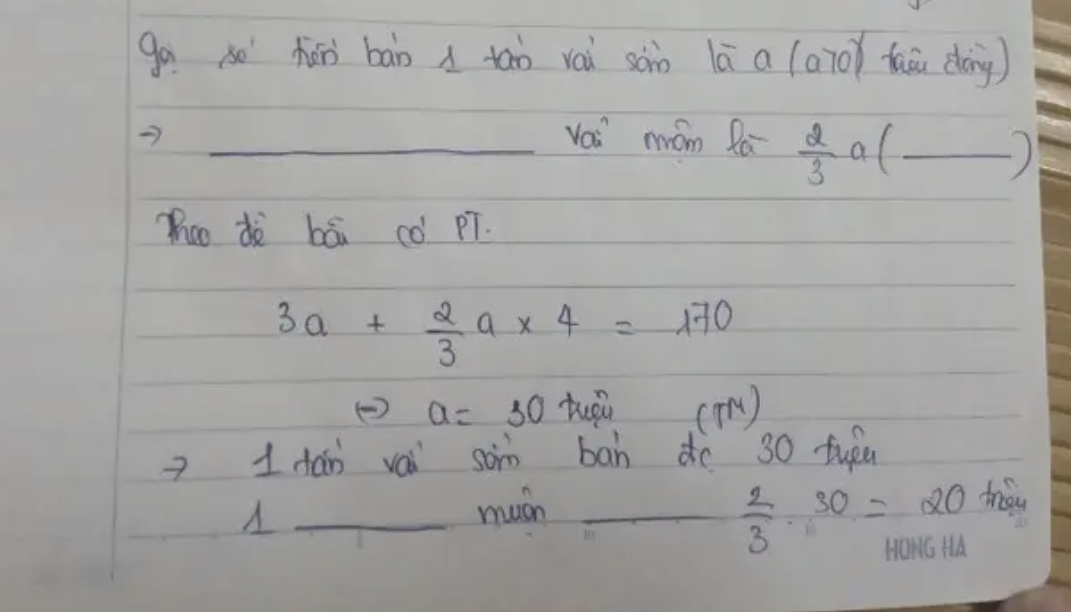 Gọi số tiền bán 1 tấn vải sớm là a (a>0) triệu đồng)
→ ________ vải muộn là 2/3 a ( ____ )
Theo đề bài có PT.
3a + 2/3 a × 4 = 170
⇔ a = 30 triệu (TM)
→ 1 tấn vải sớm bán đc 30 triệu
1 ____ muộn ____ 2/3 . 30 = 20 triệu
HONG HA